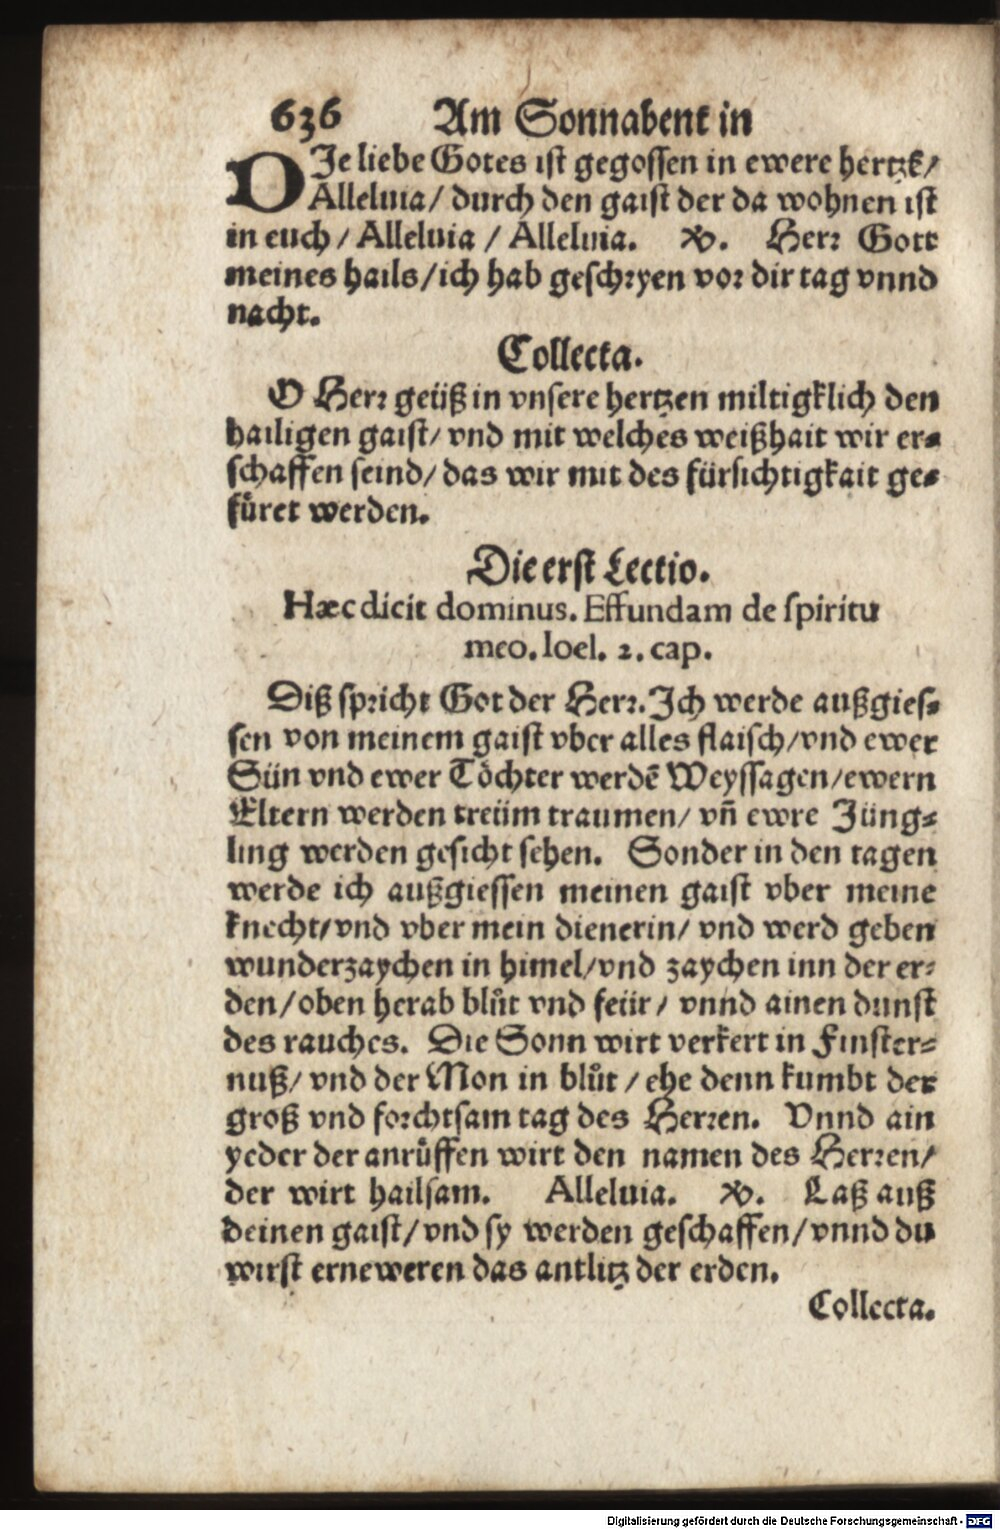 636 Am Sonnabent in
DIe liebe Gotes ist gegossen in ewere hertzē/
Alleluia/ durch den gaist der da wohnen ist
in euch / Alleluia / Alleluia. ꝟ. Herr Gott
meines hails/ich hab geschryen vor dir tag vnnd
nacht.
Collecta.
O Herr geüß in vnsere hertzen miltigklich den
hailigen gaist/ vnd mit welches weißhait wir er-
schaffen seind/ das wir mit des fürsichtigkait ge-
fůret werden.
Die erst Lectio.
Hæc dicit dominus. Effundam de spiritu
meo. Ioel. 2. cap.
Diß spricht Got der Herr. Ich werde außgies-
sen von meinem gaist vber alles flaisch/vnd ewer
Sün vnd ewer Töchter werdē Weyssagen/ewern
Eltern werden treüm traumen/ vñ ewre Jüng-
ling werden gesicht sehen. Sonder in den tagen
werde ich außgiessen meinen gaist vber meine
knecht/vnd vber mein dienerin/ vnd werd geben
wunderzaychen in himel/vnd zaychen inn der er-
den/oben herab blůt vnd feür/ vnnd ainen dunst
des rauches. Die Sonn wirt verkert in Finster-
nuß/ vnd der Mon in blůt / ehe denn kumbt der
groß vnd forchtsam tag des Herren. Vnnd ain
yeder der anrůffen wirt den namen des Herren/
der wirt hailsam. Alleluia. ꝟ. Laß auß
deinen gaist/vnd sy werden geschaffen/vnnd du
wirst erneweren das antlitz der erden.
Collecta.
Digitalisierung gefördert durch die Deutsche Forschungsgemeinschaft - DFG